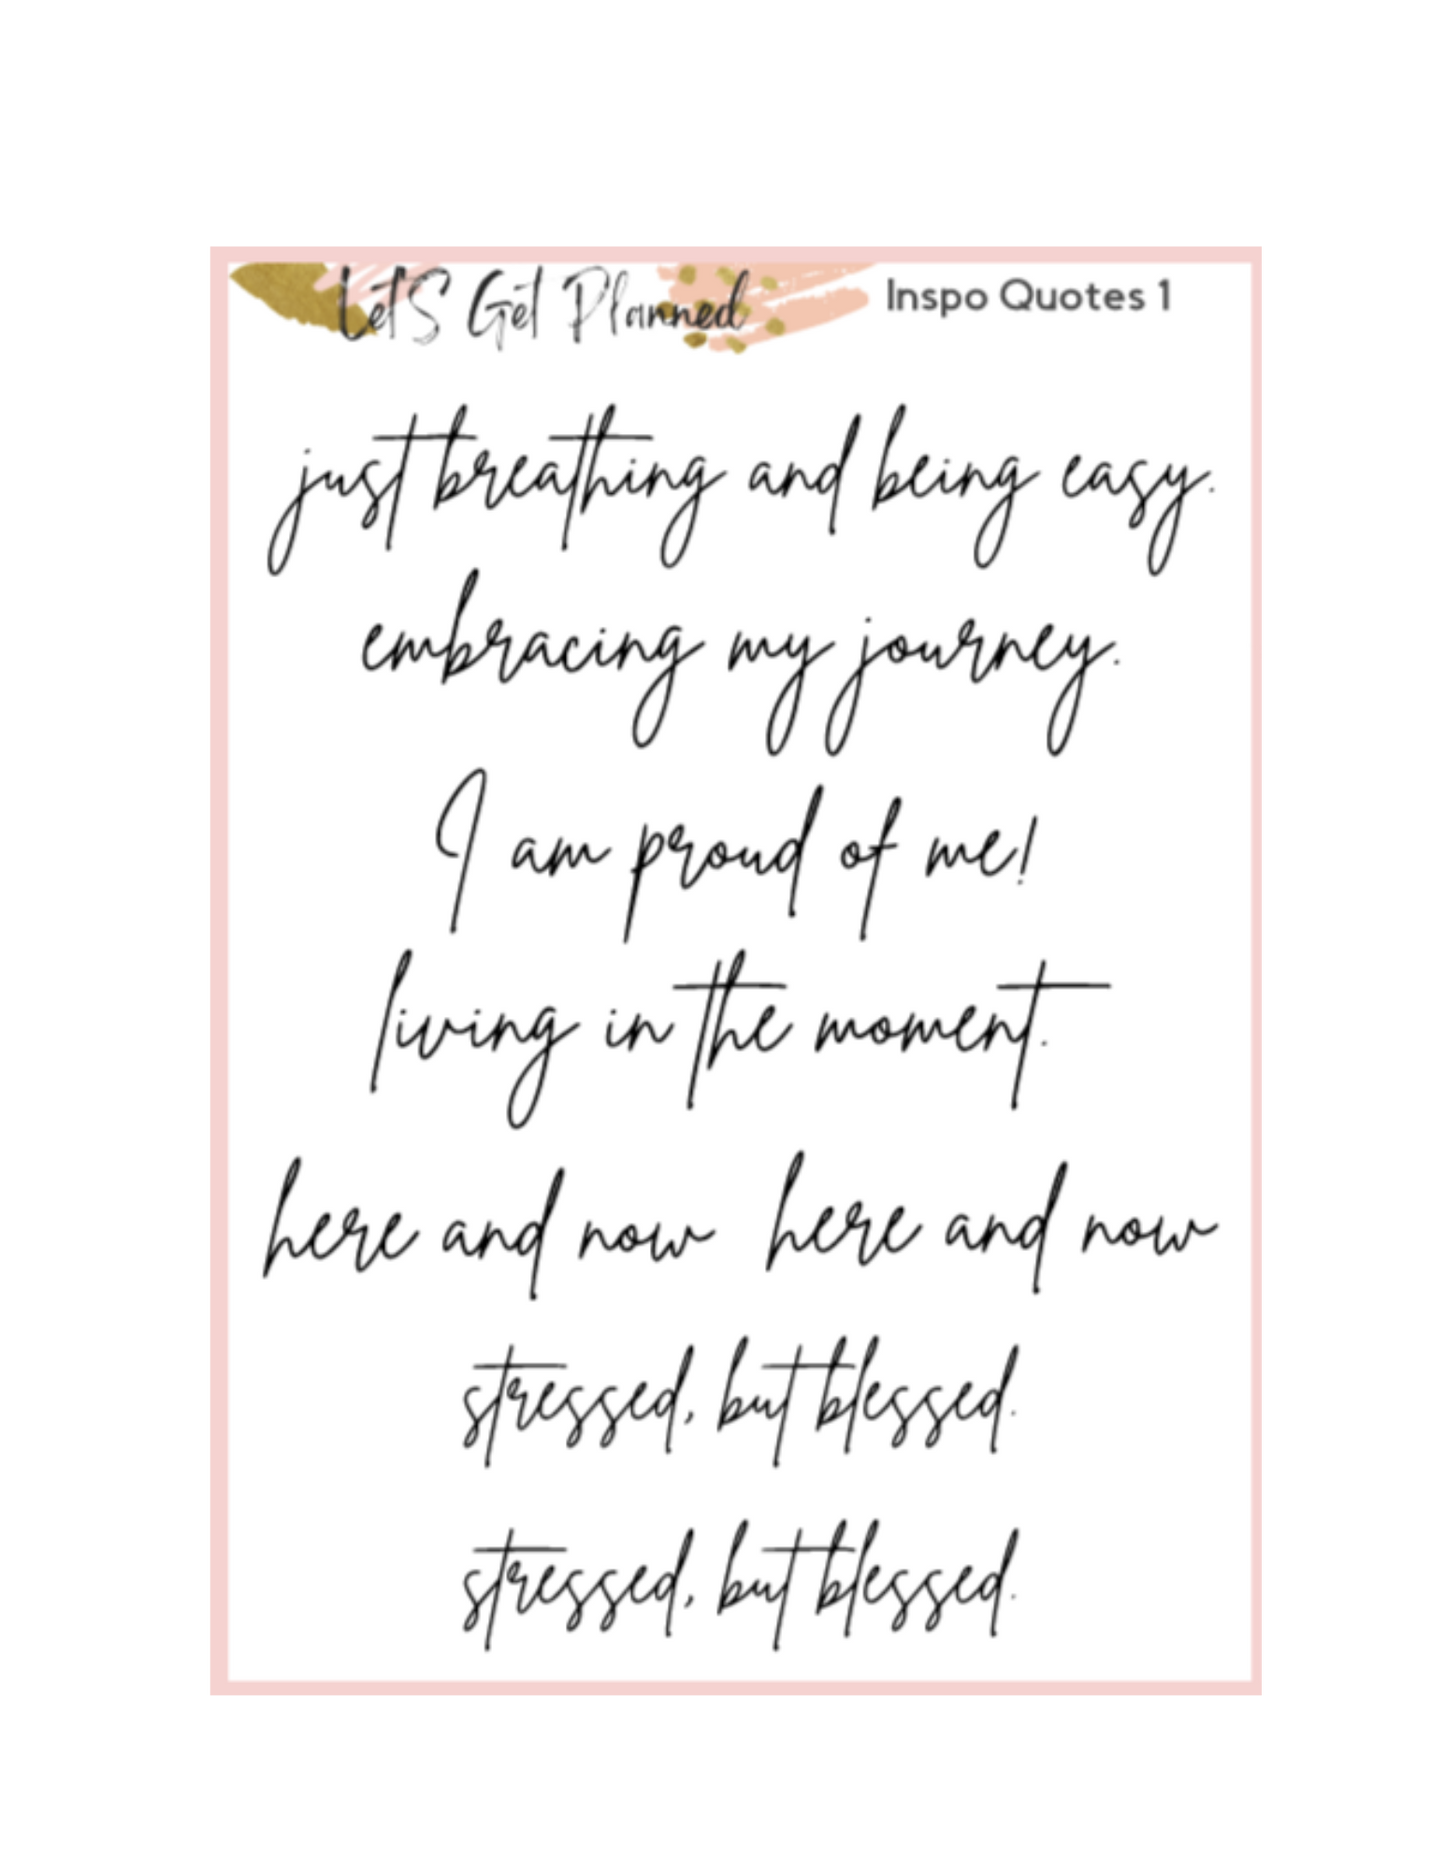 Let'S Get Planned Inspo Quotes 1
just breathing and being easy.
embracing my journey.
I am proud of me!
living in the moment.
here and now here and now
stressed, but blessed.
stressed, but blessed.